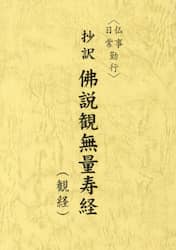 〈仏事
日常勤行〉
抄訳 佛説観無量寿経
(観経)